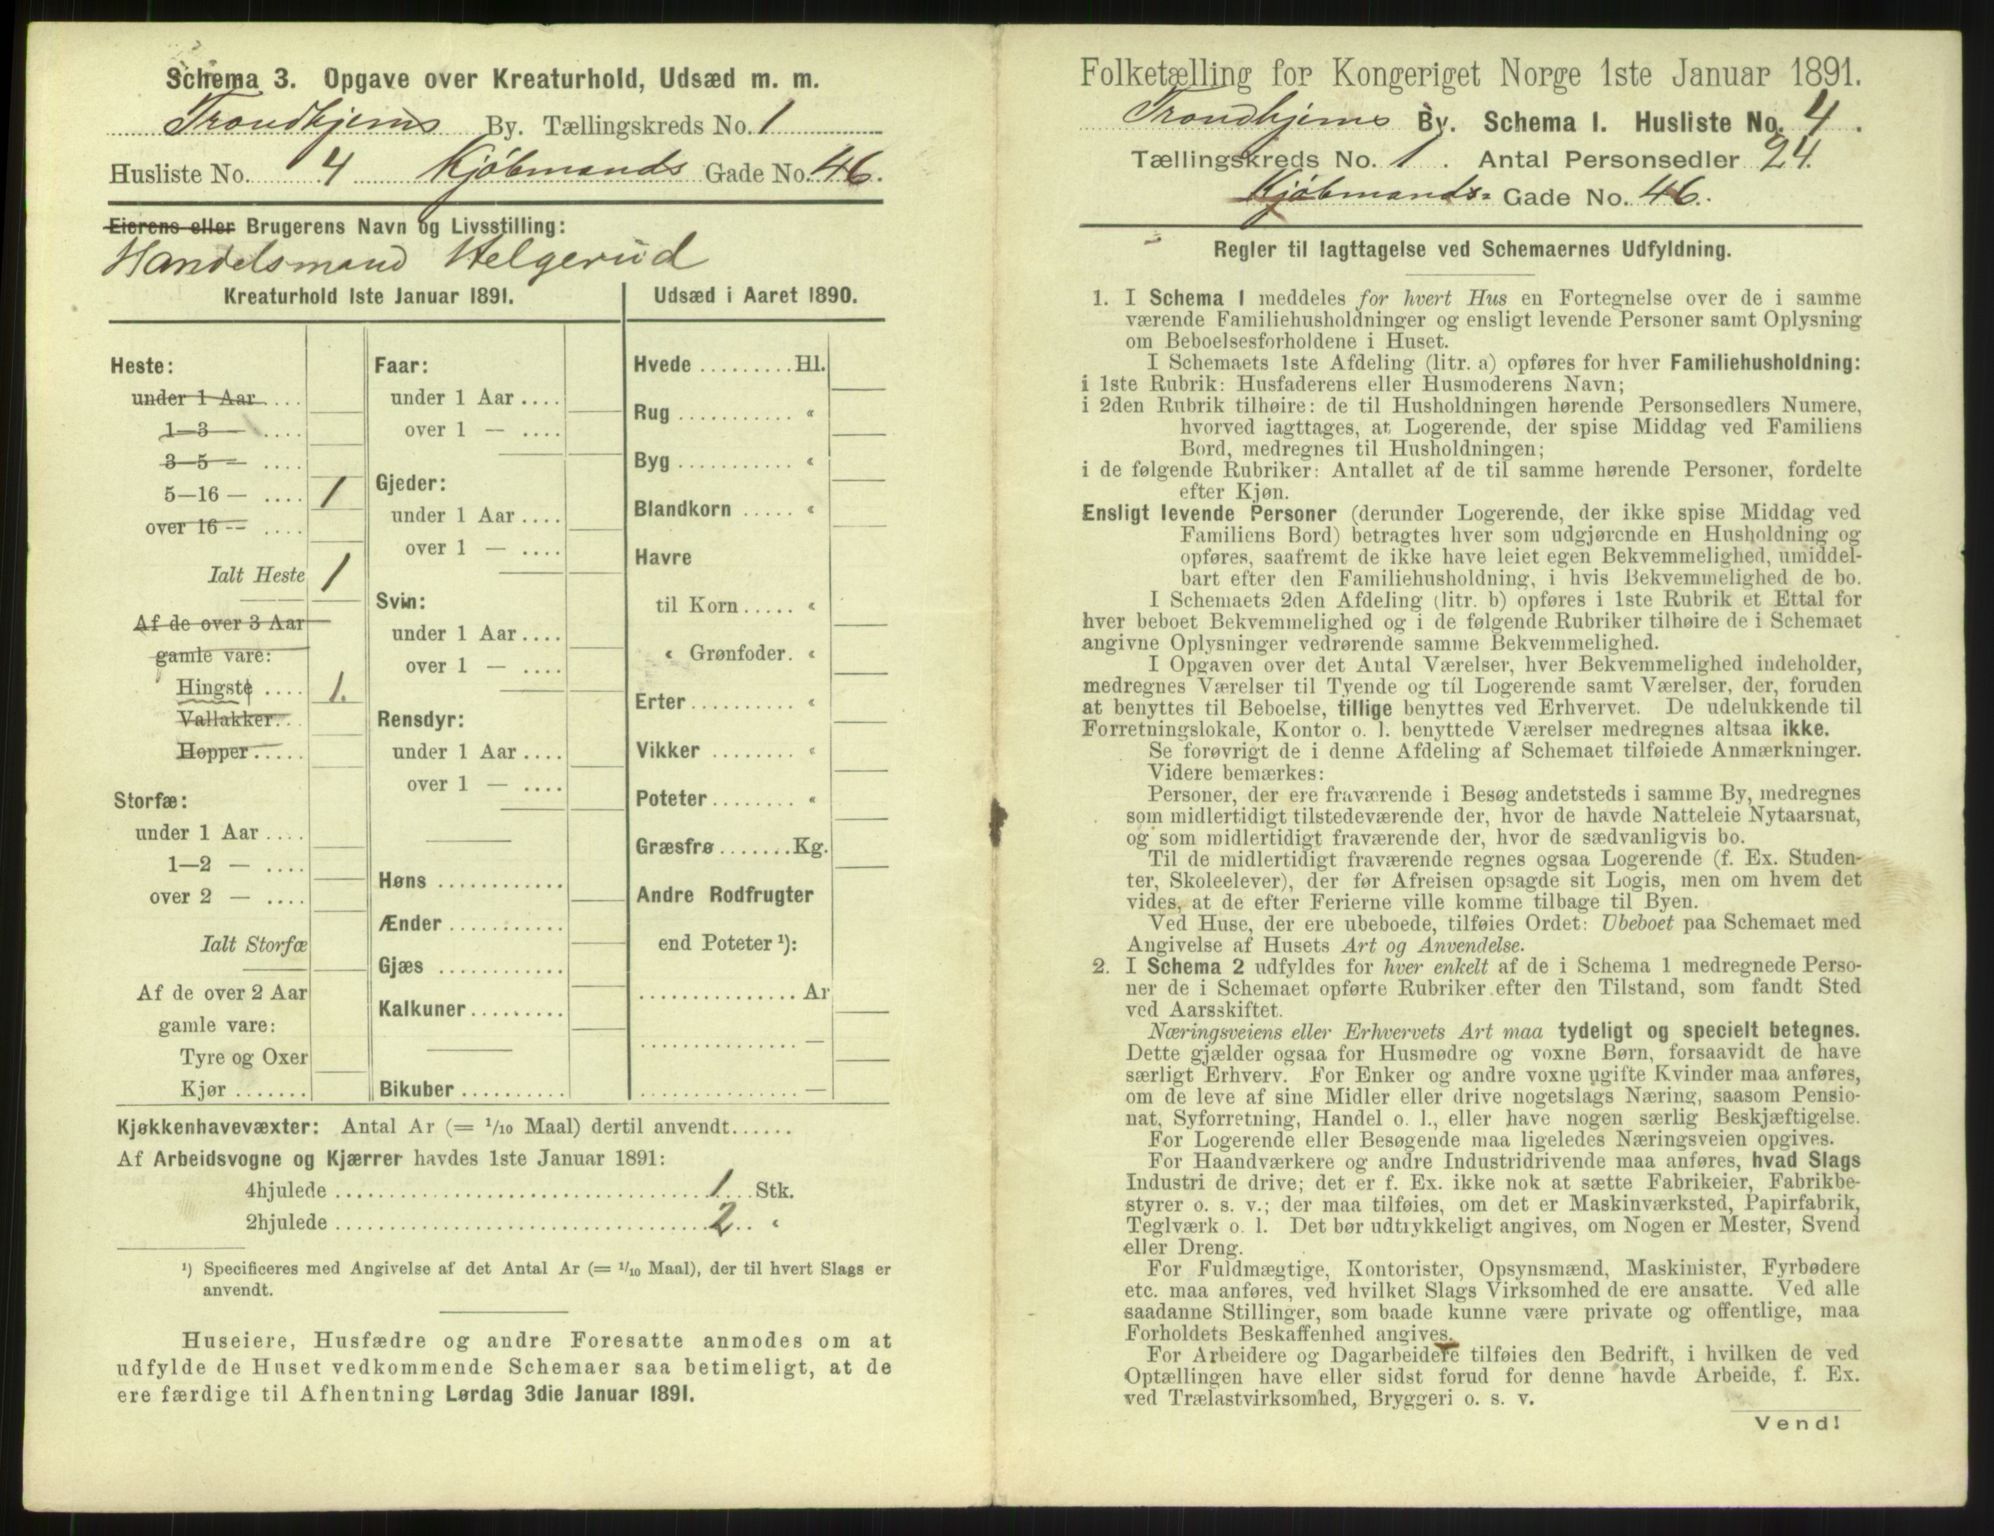 Schema 3. Opgave over Kreaturhold, Udsæd m. m.
Trondhjems By. Tællingskreds No. 1
Husliste No. 4 Kjöbmands Gade No. 46.
Eierens eller Brugerens Navn og Livsstilling:
Handelsmand Helgerud
Kreaturhold 1ste Januar 1891.
Heste:
under 1 Aar ....
1—3 — ....
3—5 — ....
5—16 — .... 1
over 16 — ....
Ialt Heste 1
Af de over 3 Aar
gamle vare:
Hingste .... 1.
Vallakker..
Hopper.....
Storfæ:
under 1 Aar ....
1—2 — ....
over 2 — ....
Ialt Storfæ
Af de over 2 Aar
gamle vare:
Tyre og Oxer
Kjør .......
Faar:
under 1 Aar ....
over 1 — ....
Gjeder:
under 1 Aar ....
over 1 — ....
Svin:
under 1 Aar ....
over 1 — ....
Rensdyr:
under 1 Aar ....
over 1 — ....
Høns ............
Ænder ...........
Gjæs ............
Kalkuner.........
Bikuber ..........
Udsæd i Aaret 1890.
Hvede ......... Hl.
Rug ........... «
Byg ........... «
Blandkorn ..... «
Havre
til Korn ..... «
« Grønfoder. «
Erter.......... «
Vikker ........ «
Poteter........ «
Græsfrø ....... Kg.
Andre Rodfrugter
end Poteter ¹):
............... Ar
............... —
............... —
Kjøkkenhavevæxter: Antal Ar (= ¹/₁₀ Maal) dertil anvendt......
Af Arbeidsvogne og Kjærrer havdes 1ste Januar 1891:
4hjulede .................................... 1 ... Stk.
2hjulede .................................... 2 .. «
¹) Specificeres med Angivelse af det Antal Ar (= ¹/₁₀ Maal), der til hvert Slags er
anvendt.
Huseiere, Husfædre og andre Foresatte anmodes om at
udfylde de Huset vedkommende Schemaer saa betimeligt, at de
ere færdige til Afhentning Lørdag 3die Januar 1891.
Folketælling for Kongeriget Norge 1ste Januar 1891.
Trondhjems By. Schema 1. Husliste No. 4.
Tællingskreds No. 1. Antal Personsedler 24.
Kjöbmands- Gade No. 46.
Regler til Iagttagelse ved Schemaernes Udfyldning.
1. I Schema 1 meddeles for hvert Hus en Fortegnelse over de i samme
værende Familiehusholdninger og ensligt levende Personer samt Oplysning
om Beboelsesforholdene i Huset.
I Schemaets 1ste Afdeling (litr. a) opføres for hver Familiehusholdning:
i 1ste Rubrik: Husfaderens eller Husmoderens Navn;
i 2den Rubrik tilhøire: de til Husholdningen hørende Personsedlers Numere,
hvorved iagttages, at Logerende, der spise Middag ved Familiens
Bord, medregnes til Husholdningen;
i de følgende Rubriker: Antallet af de til samme hørende Personer, fordelte
efter Kjøn.
Ensligt levende Personer (derunder Logerende, der ikke spise Middag ved
Familiens Bord) betragtes hver som udgjørende en Husholdning og
opføres, saafremt de ikke have leiet egen Bekvemmelighed, umiddel-
bart efter den Familiehusholdning, i hvis Bekvemmelighed de bo.
I Schemaets 2den Afdeling (litr. b) opføres i 1ste Rubrik et Ettal for
hver beboet Bekvemmelighed og i de følgende Rubriker tilhøire de i Schemaet
angivne Oplysninger vedrørende samme Bekvemmelighed.
I Opgaven over det Antal Værelser, hver Bekvemmelighed indeholder,
medregnes Værelser til Tyende og til Logerende samt Værelser, der, foruden
at benyttes til Beboelse, tillige benyttes ved Erhvervet. De udelukkende til
Forretningslokale, Kontor o. l. benyttede Værelser medregnes altsaa ikke.
Se forøvrigt de i denne Afdeling af Schemaet tilføiede Anmærkninger.
Videre bemærkes:
Personer, der ere fraværende i Besøg andetsteds i samme By, medregnes
som midlertidigt tilstedeværende der, hvor de havde Natteleie Nytaarsnat,
og som midlertidigt fraværende der, hvor de sædvanligvis bo.
Til de midlertidigt fraværende regnes ogsaa Logerende (f. Ex. Studen-
ter, Skoleelever), der før Afreisen opsagde sit Logis, men om hvem det
vides, at de efter Ferierne ville komme tilbage til Byen.
Ved Huse, der ere ubeboede, tilføies Ordet: Ubeboet paa Schemaet med
Angivelse af Husets Art og Anvendelse.
2. I Schema 2 udfyldes for hver enkelt af de i Schema 1 medregnede Perso-
ner de i Schemaet opførte Rubriker efter den Tilstand, som fandt Sted
ved Aarsskiftet.
Næringsveiens eller Erhvervets Art maa tydeligt og specielt betegnes.
Dette gjælder ogsaa for Husmødre og voxne Børn, forsaavidt de have
særligt Erhverv. For Enker og andre voxne ugifte Kvinder maa anføres,
om de leve af sine Midler eller drive nogetslags Næring, saasom Pensio-
nat, Syforretning, Handel o. l., eller have nogen særlig Beskjæftigelse.
For Logerende eller Besøgende maa ligeledes Næringsveien opgives.
For Haandværkere og andre Industridrivende maa anføres, hvad Slags
Industri de drive; det er f. Ex. ikke nok at sætte Fabrikeier, Fabrikbe-
styrer o. s. v.; der maa tilføies, om det er Maskinværksted, Papirfabrik,
Teglværk o. l. Det bør udtrykkeligt angives, om Nogen er Mester, Svend
eller Dreng.
For Fuldmægtige, Kontorister, Opsynsmænd, Maskinister, Fyrbødere
etc. maa anføres, ved hvilket Slags Virksomhed de ere ansatte. Ved alle
saadanne Stillinger, som baade kunne være private og offentlige, maa
Forholdets Beskaffenhed angives.
For Arbeidere og Dagarbeidere tilføies den Bedrift, i hvilken de ved
Optællingen have eller sidst forud for denne havde Arbeide, f. Ex.
ved Trælastvirksomhed, Bryggeri o. s. v.
Vend!